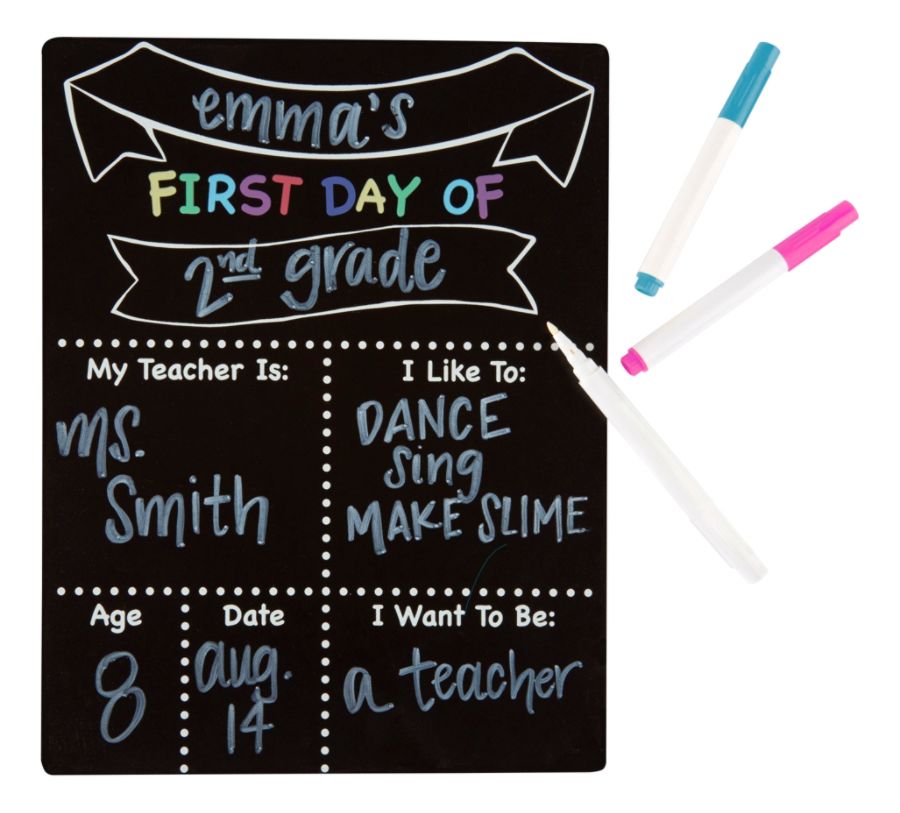 emma's
FIRST DAY OF
2nd grade
My Teacher Is:
ms.
Smith
I Like To:
DANCE
Sing
MAKE SLIME
Age
8
Date
aug.
14
I Want To Be:
a teacher